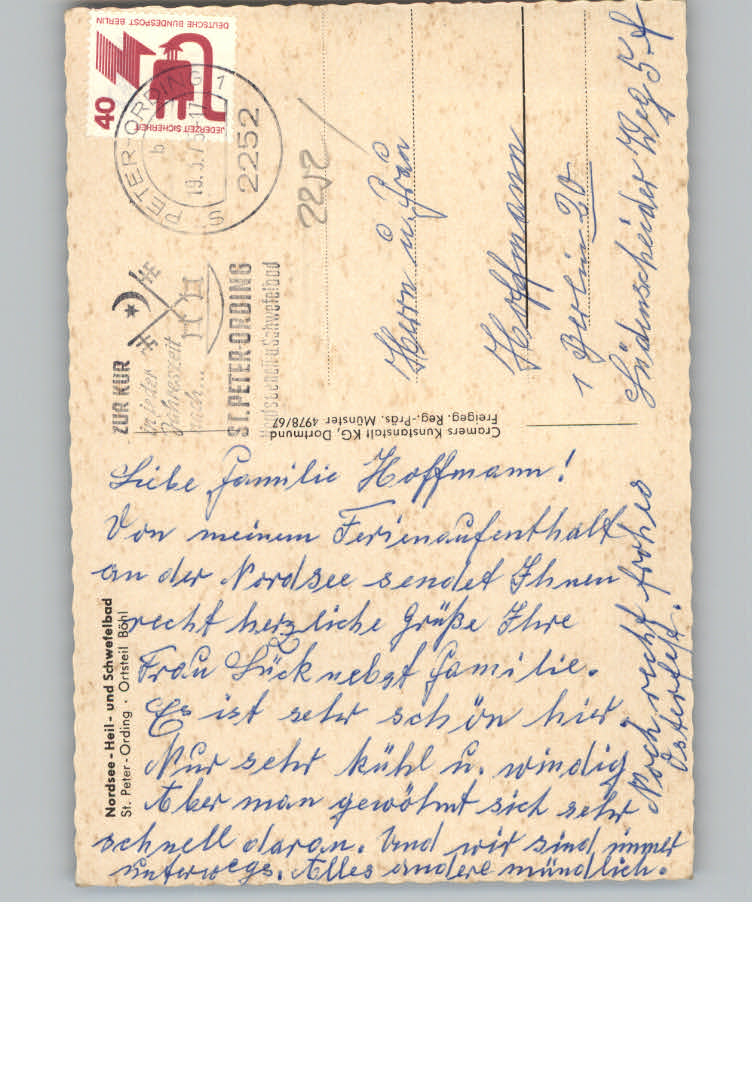 DEUTSCHE BUNDESPOST BERLIN
JEDERZEIT SICHERHEIT
40
ST. PETER-ORDING 1
2252
ZUR KUR
in jeder
Jahreszeit
nach...
ST. PETER-ORDING
Nordseeheil u Schwefelbad
2252
Herrn u. Frau
Hoffmann
1 Berlin 20
Lüdenscheider Weg 54
Cramers Kunstanstalt KG, Dortmund
Freigeg. Reg.-Präs. Münster 4978/67
Nordsee-Heil- und Schwefelbad
St. Peter-Ording · Ortsteil Böhl
Liebe Familie Hoffmann!
Von meinem Ferienaufenthalt
an der Nordsee sendet Ihnen
recht herzliche Grüße Ihre
Frau Lück nebst Familie.
Es ist sehr schön hier.
Nur sehr kühl u. windig.
Aber man gewöhnt sich sehr
schnell daran. Und wir sind immer
unterwegs. Alles andere mündlich.
Noch recht frohes
Osterfest.